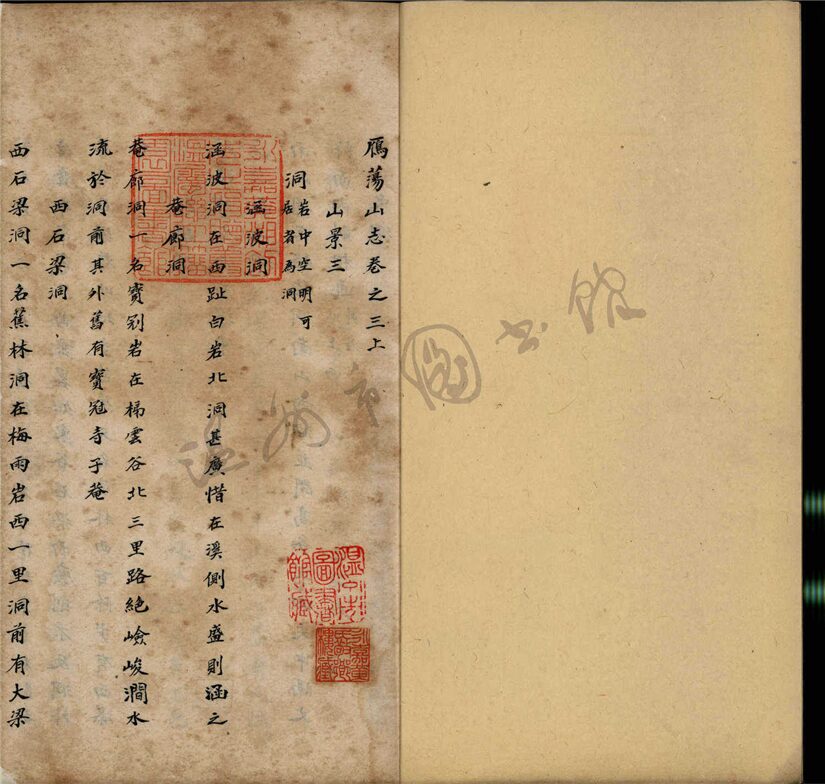 雁蕩山志卷之三上
山景三
洞岩中空明可居者為洞
涵波洞
涵波洞在西趾白岩北洞甚廣惜在溪側水盛則涵之
菴廊洞
菴廊洞一名寶剎岩在掃雲谷北三里路絶嶮峻澗水
流於洞前其外舊有寶冠寺子菴
西石梁洞
西石梁洞一名蕉林洞在梅雨岩西一里洞前有大梁
温州市圖書館